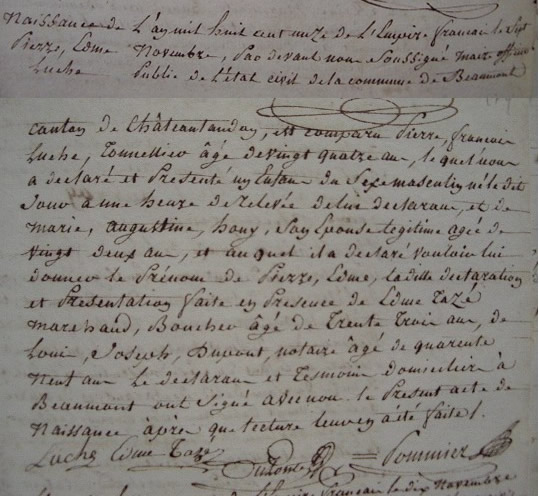 Naissance de L'an mil huit cent onze de L'Empire francais le Sept
Pierre, Edme Novembre, Par devant nous Soussigné maire officier
Luche Public de L'état civil de la commune de Beaumont
canton de Châteaulandon, est comparu Pierre, francois
Luche, Tonnellier âgé de vingt quatre ans, lequel nous
a declaré et Presenté un Enfant du Sexe masculin né le dit
Jour a une heure de relevée de lui declarant, et de
marie, augustine, hony, Son Epouse legitime agée de
vingt deux ans, et auquel il a declaré vouloir lui
donner le Prénom de Pierre, Edme, la ditte declaration
et Presentation faite en Presence de Edme Tazé
marchand, Boucher âgé de Trente Trois ans, de
Louis, Joseph, Dupont, notaire âgé de quarente
Neuf ans Le declarant et Temoins domiciliés à
Beaumont ont Signé avec nous le Present acte de
Naissance àpres que lecture leur en a été faite /.
Luche Edme Tazé Pommier
francais le dix Novembre